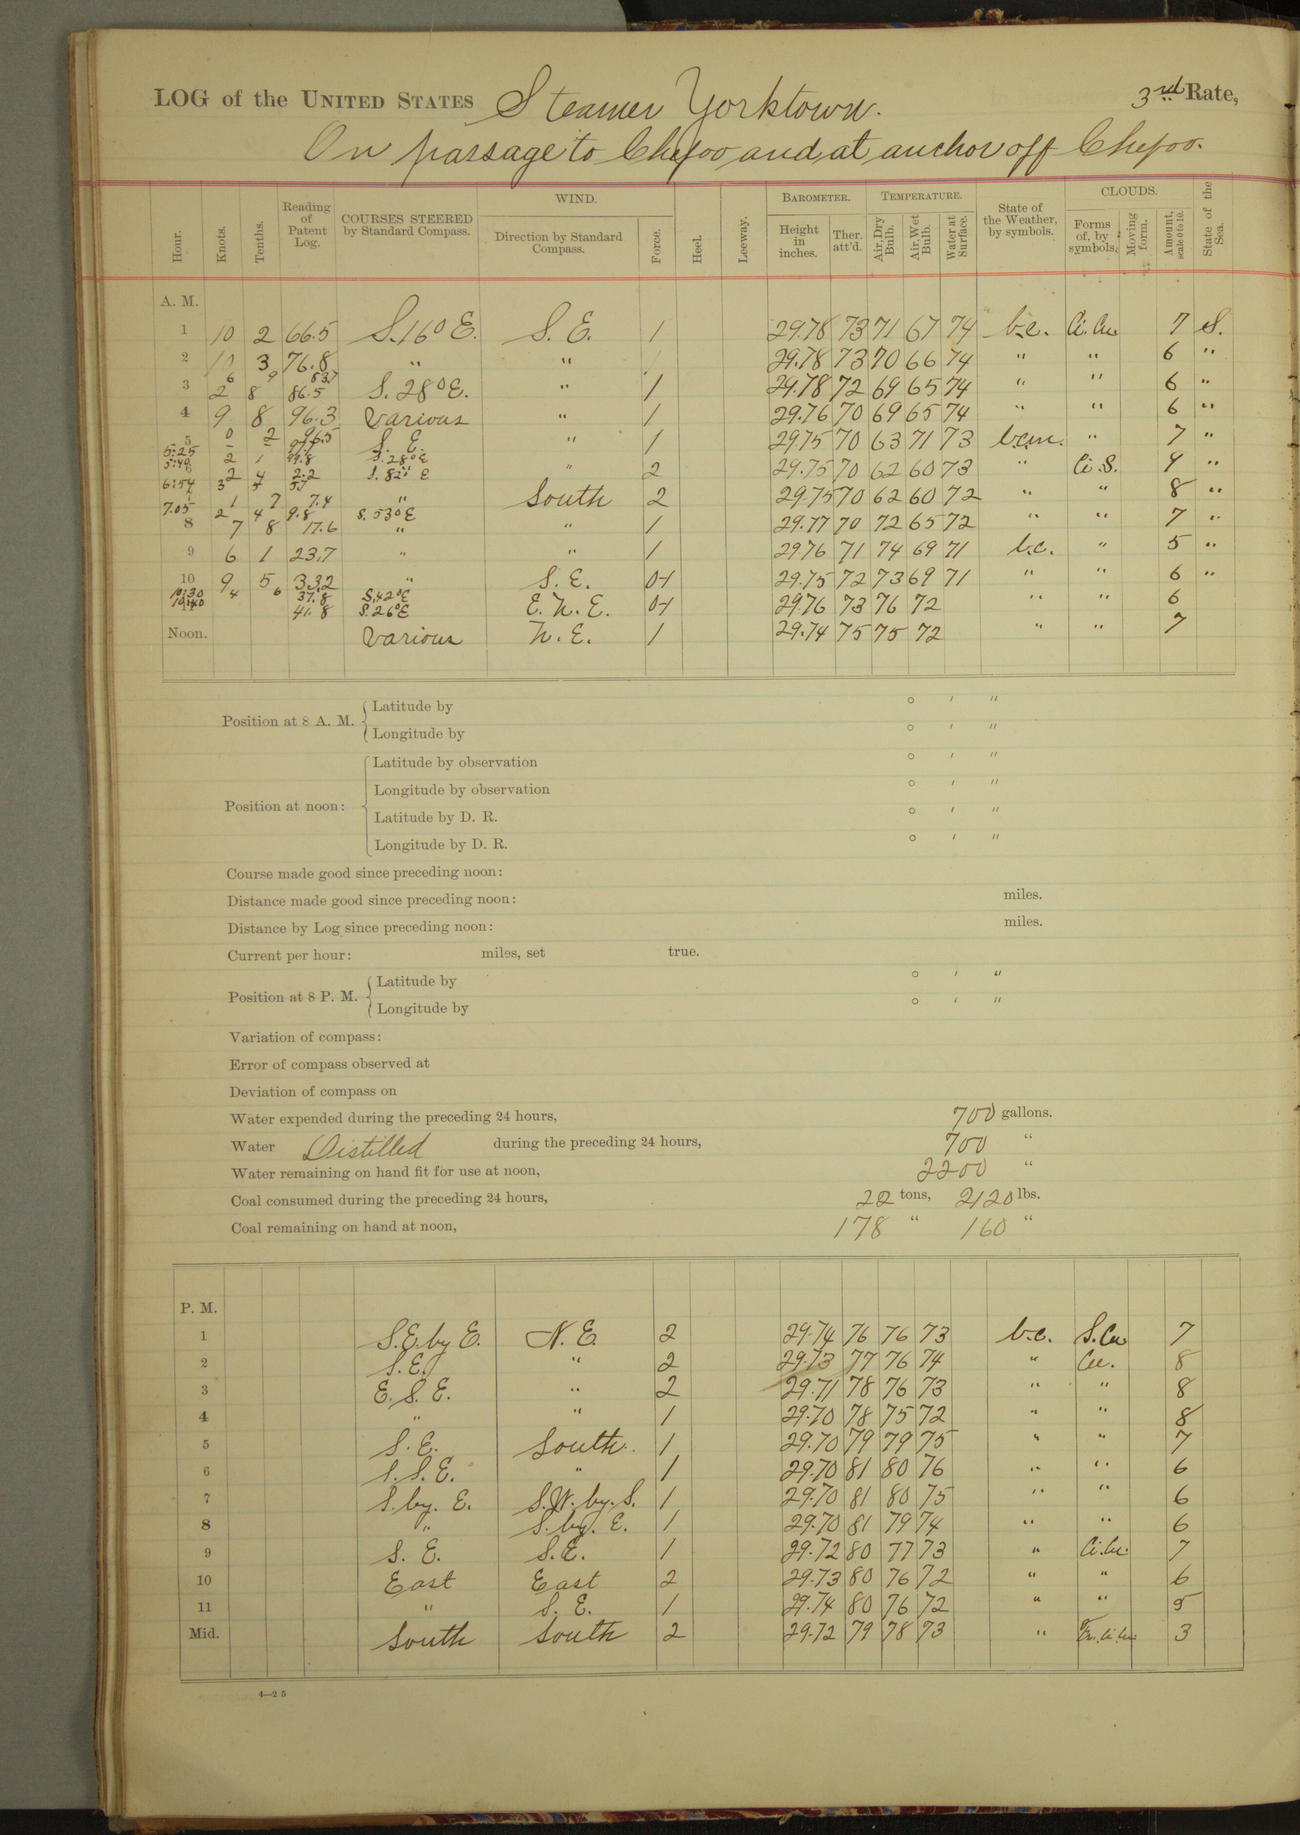 LOG of the UNITED STATES Steamer Yorktown. 3rd Rate,
On passage to Chefoo and at anchor off Chefoo.
Hour. Knots. Tenths. Reading of Patent Log. COURSES STEERED by Standard Compass. WIND. Direction by Standard Compass. Force. Heel. Leeway. BAROMETER. Height in inches. Ther. att'd. TEMPERATURE. Air, Dry Bulb. Air, Wet Bulb. Water at Surface. State of the Weather, by symbols. CLOUDS. Forms of, by symbols. Moving form. Amount, scale 0 to 10. State of the Sea.
A. M.
1 10 2 66.5 S. 16° E. S. E. 1 29.78 73 71 67 74 b.c. Ci. Cu. 7 S.
2 10 3 76.8 " " 29.78 73 70 66 74 " " 6 "
6 9 83.7
3 2 8 86.5 S. 28° E. " 1 29.78 72 69 65 74 " " 6 "
4 9 8 96.3 Various " 1 29.76 70 69 65 74 " " 6 "
5 0 2 96.5 S. E. " 1 29.75 70 63 71 73 b.c.m. " 7 "
5:25 2 1 99.8 S. 28° E
5:49 2 4 2.2 S. 82° E " 2 29.75 70 62 60 73 " Ci. S. 4 "
6:54 3
1 7 7.4 " South 2 29.75 70 62 60 72 " " 8 "
7.05 2 4 9.8 S. 53° E
8 7 8 17.6 " " 1 29.77 70 72 65 72 " " 7 "
9 6 1 23.7 " " 1 29.76 71 74 69 71 b.c. " 5 "
10 9 5 33.2 " S. E. 0-1 29.75 72 73 69 71 " " 6 "
10:30 4 6 37.8 S. 42° E
10:40 41.8 S. 26° E E. N. E. 0-1 29.76 73 76 72 " " 6
Noon. Various N. E. 1 29.74 75 75 72 " " 7
Position at 8 A. M. Latitude by ° ' "
Longitude by ° ' "
Position at noon: Latitude by observation ° ' "
Longitude by observation ° ' "
Latitude by D. R. ° ' "
Longitude by D. R. ° ' "
Course made good since preceding noon:
Distance made good since preceding noon: miles.
Distance by Log since preceding noon: miles.
Current per hour: miles, set true.
Position at 8 P. M. Latitude by ° ' "
Longitude by ° ' "
Variation of compass:
Error of compass observed at
Deviation of compass on
Water expended during the preceding 24 hours, 700 gallons.
Water Distilled during the preceding 24 hours, 700 "
Water remaining on hand fit for use at noon, 2200 "
Coal consumed during the preceding 24 hours, 22 tons, 2120 lbs.
Coal remaining on hand at noon, 178 " 160 "
P. M.
1 S.E. by E. N. E. 2 29.74 76 76 73 b.c. S. Cu 7
2 S. E. " 2 29.73 77 76 74 " Cu. 8
3 E. S. E. " 2 29.71 78 76 73 " " 8
4 " " 1 29.70 78 75 72 " " 8
5 S. E. South. 1 29.70 79 79 75 " " 7
6 S. S. E. " 1 29.70 81 80 76 " " 6
7 S. by. E. S.W. by. S. 1 29.70 81 80 75 " " 6
8 " S. by. E. 1 29.70 81 79 74 " " 6
9 S. E. S. E. 1 29.72 80 77 73 " Ci. Cu. 7
10 East East 2 29.73 80 76 72 " " 6
11 " S. E. 1 29.74 80 76 72 " " 5
Mid. South South 2 29.72 79 78 73 " 3
4—25